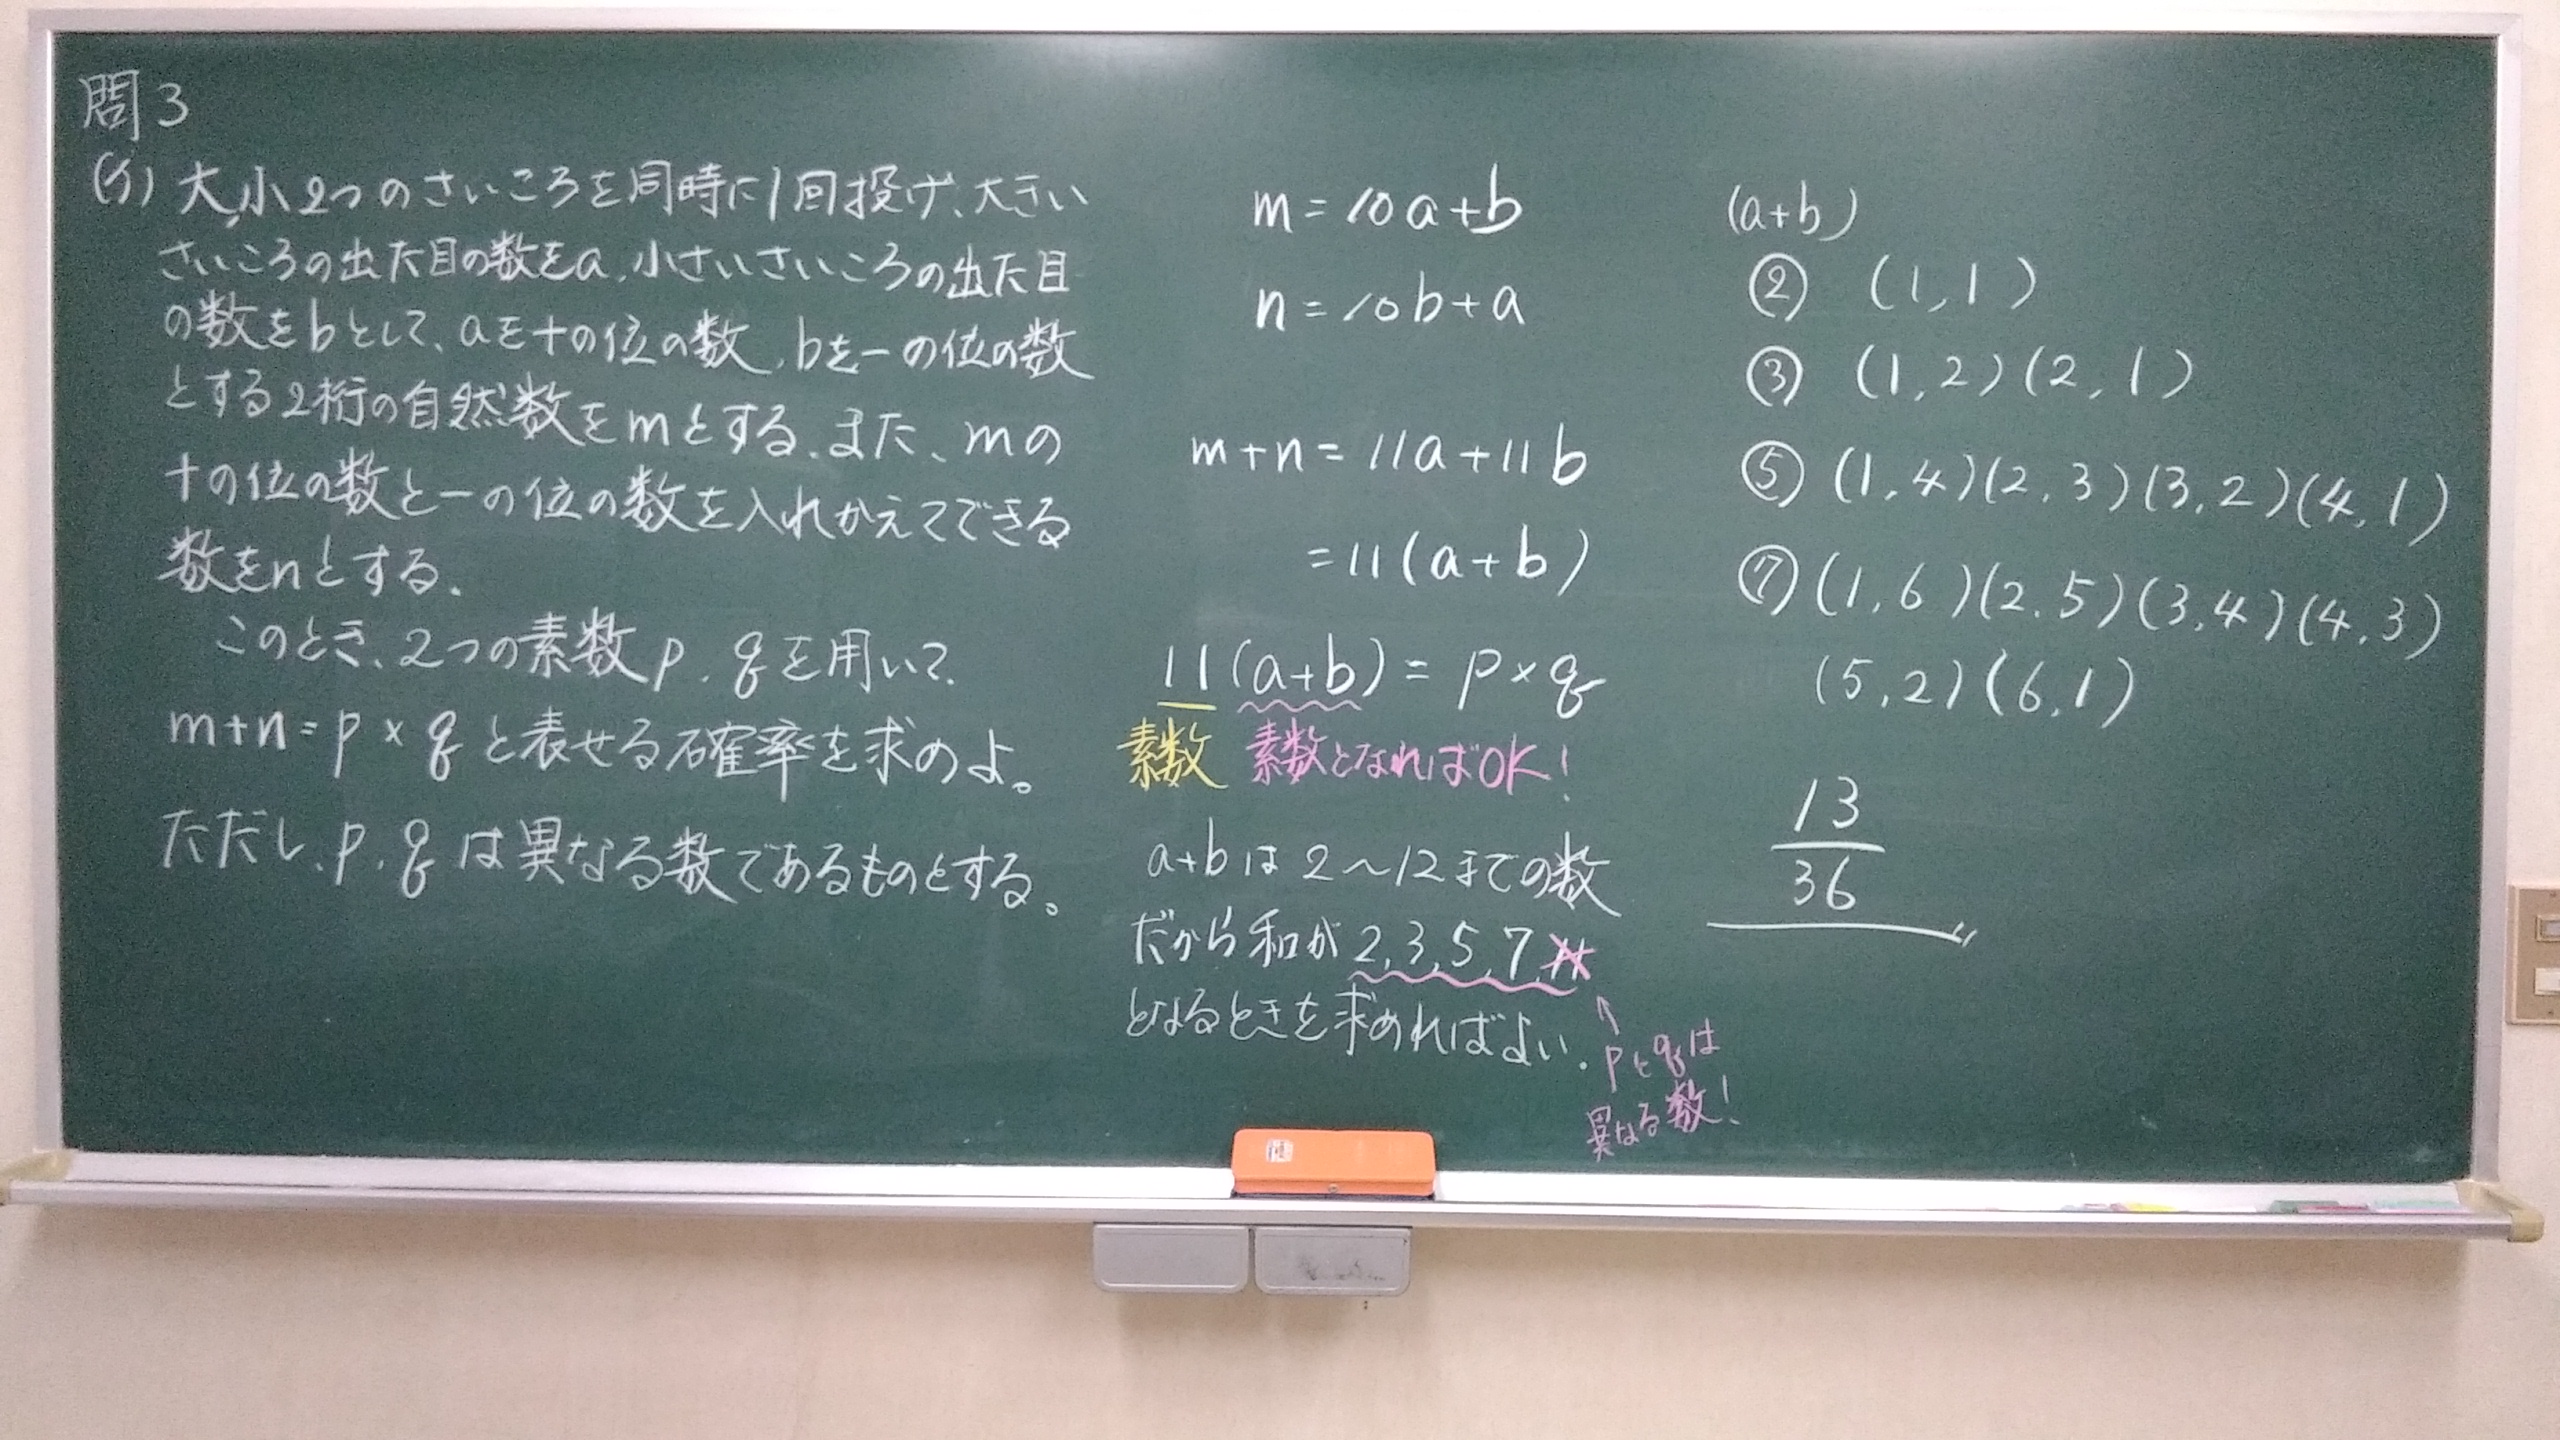 問3
(イ) 大,小2つのさいころを同時に1回投げ、大きい
さいころの出た目の数をa,小さいさいころの出た目
の数をbとして、aを十の位の数,bを一の位の数
とする2桁の自然数をmとする.また、mの
十の位の数と一の位の数を入れかえてできる
数をnとする.
このとき、2つの素数p,qを用いて、
m+n=p×qと表せる確率を求めよ。
ただし、p,qは異なる数であるものとする。
m=10a+b
n=10b+a
m+n=11a+11b
=11(a+b)
11(a+b)=p×q
素数 素数となればOK!
a+bは2〜12までの数
だから和が2,3,5,7,11
となるときを求めればよい.
pとqは
異なる数!
(a+b)
② (1,1)
③ (1,2)(2,1)
⑤ (1,4)(2,3)(3,2)(4,1)
⑦ (1,6)(2,5)(3,4)(4,3)
(5,2)(6,1)
13
36